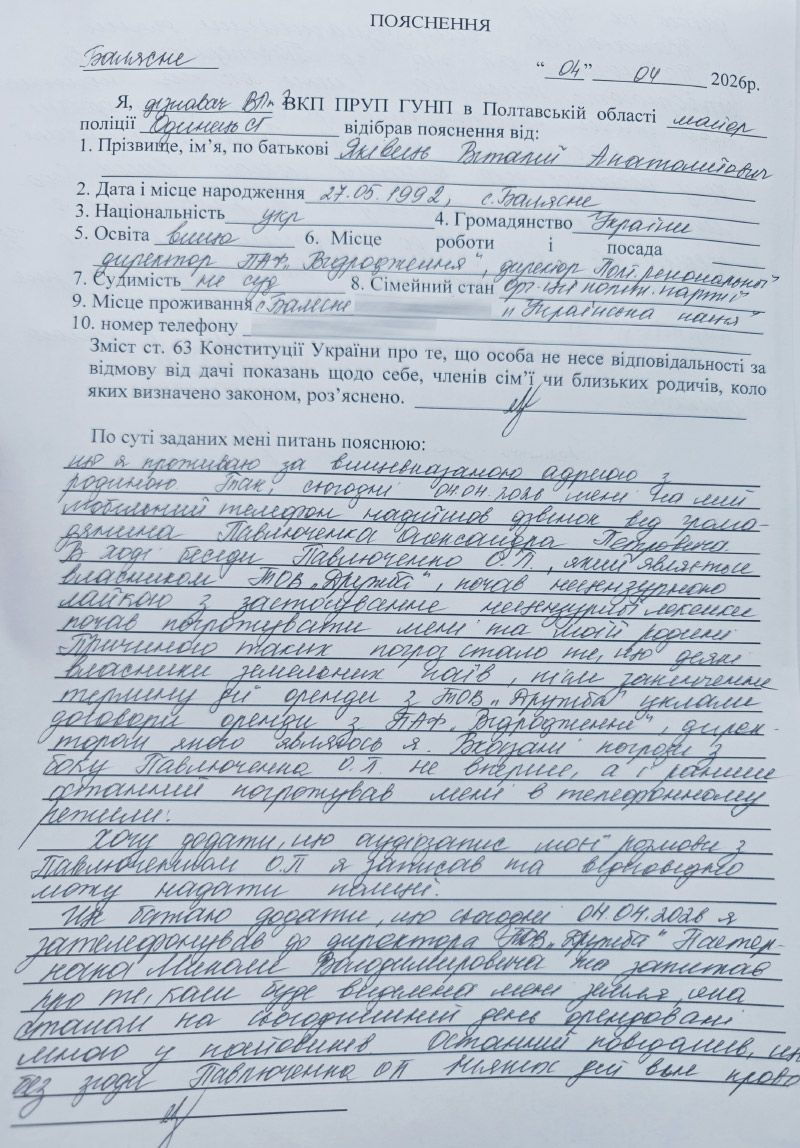 ПОЯСНЕННЯ
Балясне “04” 04 2026р.
Я, дізнавач ВП № ВКП ПРУП ГУНП в Полтавській області майор
поліції Одинець відібрав пояснення від:
1. Прізвище, ім’я, по батькові Яківець Віталій Анатолійович
2. Дата і місце народження 27.05.1992, с. Балясне
3. Національність укр 4. Громадянство України
5. Освіта вища 6. Місце роботи і посада
директор ПАФ „Відродження“, директор Полт. регіональної
7. Судимість не суд 8. Сімейний стан орг-ції політ. партії
9. Місце проживання с. Балясне „Українська нація“
10. номер телефону
Зміст ст. 63 Конституції України про те, що особа не несе відповідальності за
відмову від дачі показань щодо себе, членів сім’ї чи близьких родичів, коло
яких визначено законом, роз’яснено.
По суті заданих мені питань пояснюю:
що я проживаю за вищевказаною адресою з
родиною. Так, сьогодні 04.04.2026 мені на мій
мобільний телефон надійшов дзвінок від грома-
дянина Павлюченка Олександра Петровича.
В ході бесіди Павлюченко О.П., який являється
власником ТОВ „Дружба“, почав нецензурною
лайкою з застосування нецензурної лексики
почав погрожувати мені та моїй родині
Причиною таких погроз стало те, що деякі
власники земельних паїв, після закінчення
терміну дії оренди з ТОВ „Дружба“ уклали
договори оренди з ПАФ „Відродження“, дирек-
тором якого являюсь я. Вказані погрози з
боку Павлюченка О.П. не вперше, а і раніше
останній погрожував мені в телефонному
режимі.
Хочу додати, що аудіозапис моєї розмови з
Павлюченком О.П я записав та відповідно
можу надати поліції.
Ще бажаю додати, що сьогодні 04.04.2026 я
зателефонував до директора ТОВ „Дружба“ Пастер-
нака Миколи Володимировича та запитав
про те, коли буде виділена мені земля, яка
станом на сьогоднішній день орендовані
мною у пайовиків. Останній повідомив, що
без згоди Павлюченка ОП ніяких дій